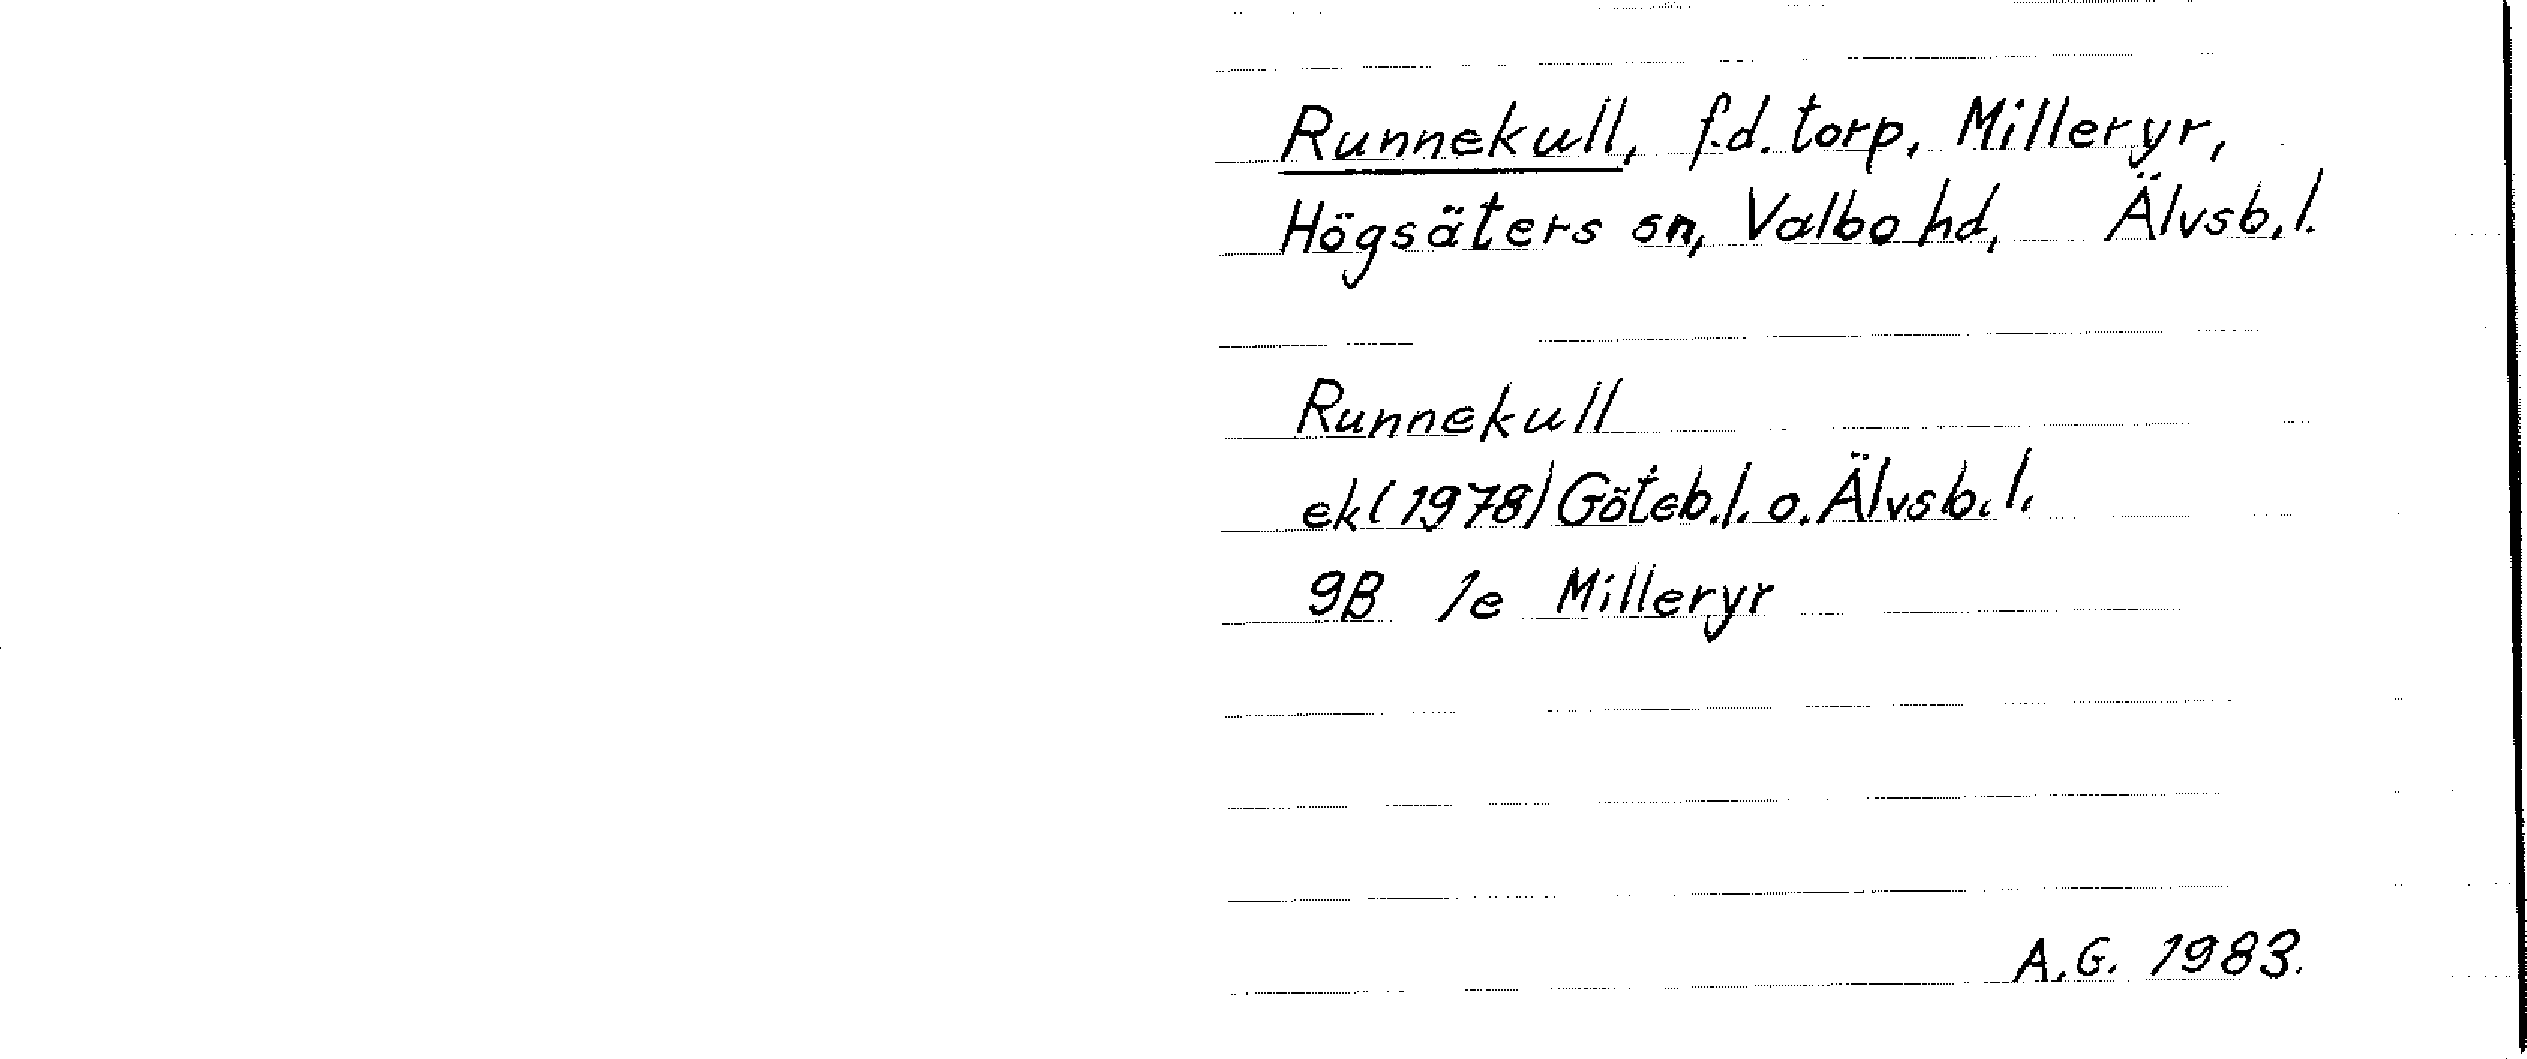 Runnekull, f.d. torp, Milleryr,
Högsäters sn, Valbo hd, Älvsb.l.
Runnekull
ek (1978) Göteb.l. o. Älvsb.l.
9B 1e Milleryr
A.G. 1983.